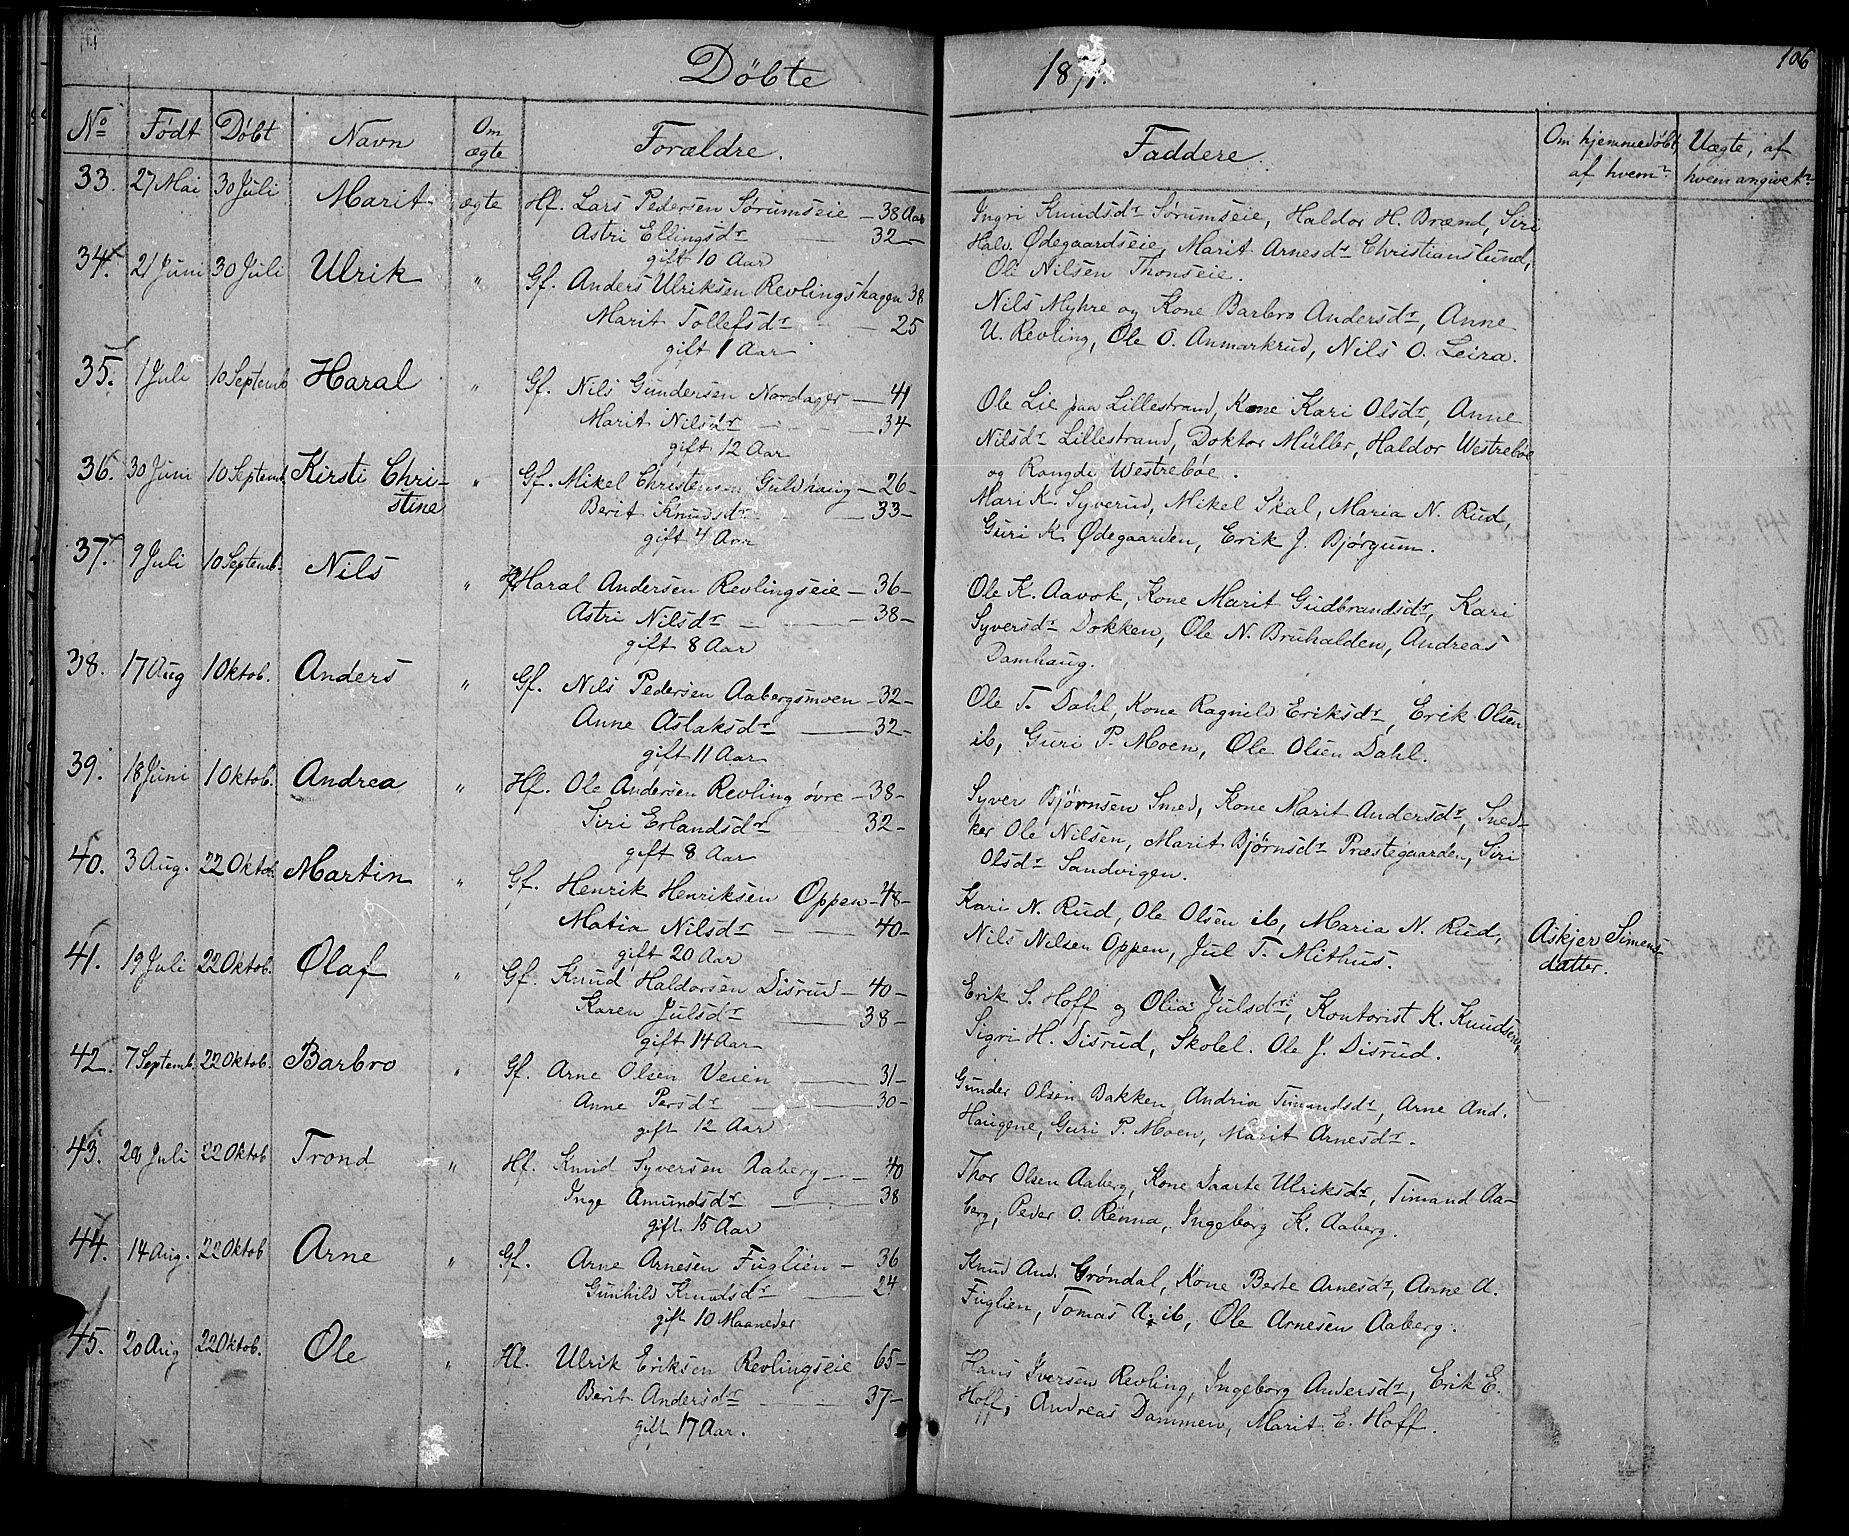 Döbte
1871.
106
No Födt Döbt Navn Om ægte Forældre.
Faddere. Om hjemmedöbt, af hvem? Uægte, af hvem angivet?
33. 27 Mai 30 Juli Marit ægte Hf. Lars Pedersen Sörumseie — 38 Aar
Astri Ellingsdr — 32 —
gift 10 Aar
Ingri Knudsdr Sörumseie, Haldor H. Brænd, Siri
Halv. Ødegaardseie, Marit Arnesdr Christianslund,
Ole Nilsen Thonseie.
34. 21 Juni 30 Juli Ulrik " Gf. Anders Ulriksen Revlingshagen 38
Marit Tollefsdr — 25
gift 1 Aar
Nils Myhre og Kone Barbro Andersdr, Anne
U. Revling, Ole O. Anmarkrud, Nils O. Leira.
35. 1 Juli 10 Septemb. Haral " Gf. Nils Gundersen Nordager — 41
Marit Nilsdr — 34
gift 12 Aar
Ole Lie paa Lillestrand, Kone Kari Olsdr, Anne
Nilsdr Lillestrand, Doktor Müller, Haldor Westreböe
og Rangdi Westreböe.
36. 30 Juni 10 Septemb. Kirsti Chri-
stine " Gf. Mikel Christensen Guldhaug — 26 —
Berit Knudsdr — 33 —
gift 4 Aar
Mari K. Syverud, Mikel Skal, Maria N. Rud,
Guri K. Ødegaarden, Erik J. Björgum.
37. 9 Juli 10 Septemb. Nils " Hf. Haral Andersen Revlingseie — 36 —
Astri Nilsdr — 38 —
gift 8 Aar
Ole K. Aavok, Kone Marit Gudbrandsdr, Kari
Syversdr Dokken, Ole N. Bruhalden, Andreas
Damhaug.
38. 17 Aug 1 Oktob. Anders " Gf. Nils Pedersen Aabergsmoen — 32 —
Anne Aslaksdr — 32 —
gift 11 Aar
Ole T. Dahl, Kone Ragnild Eriksdr, Erik Olsen
ib, Guri P. Moen, Ole Olsen Dahl.
39. 18 Juni 1 Oktob. Andrea " Hf. Ole Andersen Revling övre — 38 —
Siri Erlandsdr 32 —
gift 8 Aar
Syver Björnsen Smed, Kone Marit Andersdr, Sned-
ker Ole Nilsen, Marit Björnsdr Præstegaarden, Siri
Olsdr Sandvigen.
40. 3 Aug. 22 Oktob. Martin " Gf. Henrik Henriksen Oppen — 48 —
Matia Nilsdr — 40 —
gift 20 Aar
Kari N. Rud, Ole Olsen ib, Maria N. Rud,
Nils Nilsen Oppen, Jul T. Mithus.
Askjer Simens-
datter.
41. 19 Juli 22 Oktob. Olaf " Gf. Knud Haldorsen Disrud — 40 —
Karen Julsdr — 38 —
gift 14 Aar
Erik S. Hoff og Olia Julsdr, Kontorist K. Knudsen,
Sigri H. Disrud, Skolel. Ole J. Disrud.
42. 7 Septemb. 22 Oktob. Barbro " Gf. Arne Olsen Veien — 31 —
Anne Persdr — 30 —
gift 12 Aar
Gunder Olsen Bakken, Andria Timandsdr, Arne And.
Haugene, Guri P. Moen, Marit Arnesdr.
43. 28 Juli 22 Oktob Trond " Hf. Knud Syversen Aaberg — 40
Inge Amundsdr — 38
gift 15 Aar
Thor Olsen Aaberg, Kone Daarte Ulriksdr, Timand Aa-
berg, Peder O. Renna, Ingeborg K. Aaberg.
44. 14 Aug. 22 Oktob Arne " Gf. Arne Arnesen Fuglien — 36
Gunhild Knudsdr — 24
gift 10 Maaneder
Knud And. Gröndal, Kone Berte Arnesdr, Anne A.
Fuglien, Tomas A. ib, Ole Arnesen Aaberg.
45. 20 Aug 22 Oktob. Ole " Hf. Ulrik Eriksen Revlingseie 65 —
Berit Andersdr — 37 —
gift 17 Aar.
Hans Iversen Revling, Ingeborg Andersdr, Erik E.
Hoff, Andreas Dammen, Marit E. Hoff.